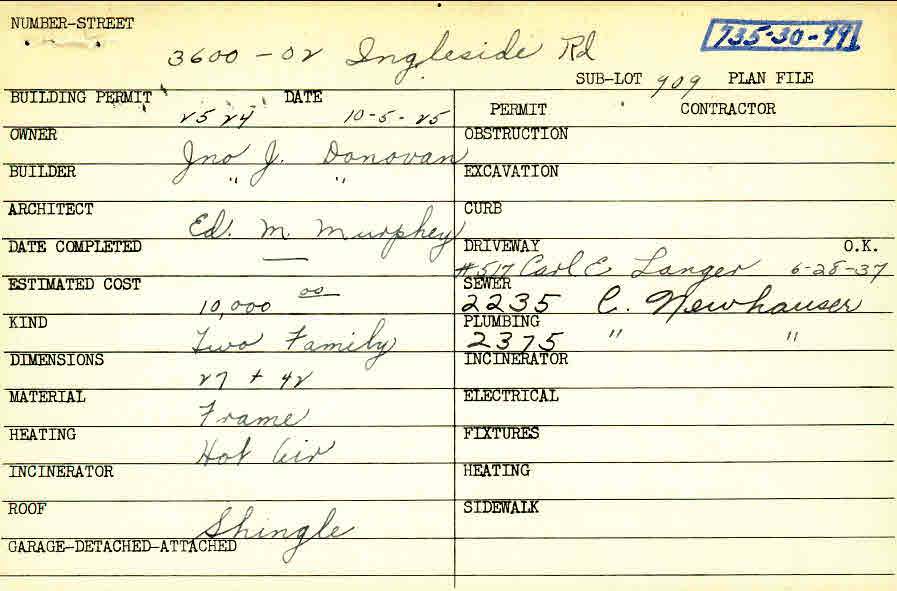 NUMBER-STREET
3600-02 Ingleside Rd
735-30-99
SUB-LOT 909 PLAN FILE
BUILDING PERMIT DATE
2524 10-5-25
OWNER
Jno J. Donovan
BUILDER
" "
ARCHITECT
Ed. M. Murphey
DATE COMPLETED
—
ESTIMATED COST
10,000 00
KIND
Two Family
DIMENSIONS
27 + 42
MATERIAL
Frame
HEATING
Hot Air
INCINERATOR
ROOF
Shingle
GARAGE-DETACHED-ATTACHED
PERMIT CONTRACTOR
OBSTRUCTION
EXCAVATION
CURB
DRIVEWAY O.K.
#517 Carl E Langer 6-28-37
SEWER
2235 C. Newhauser
PLUMBING
2375 " "
INCINERATOR
ELECTRICAL
FIXTURES
HEATING
SIDEWALK